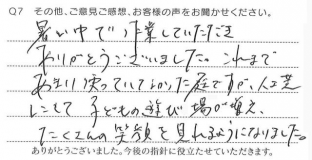 Q7 その他、ご意見ご感想、お客様の声をお聞かせください。
暑い中で作業していただき
ありがとうございました。これまで
あまり使っていなかった庭ですが、人工芝
にして子どもの遊び場が増え、
たくさんの笑顔を見れるようになりました。
ありがとうございました。今後の指針に役立たせていただきます。